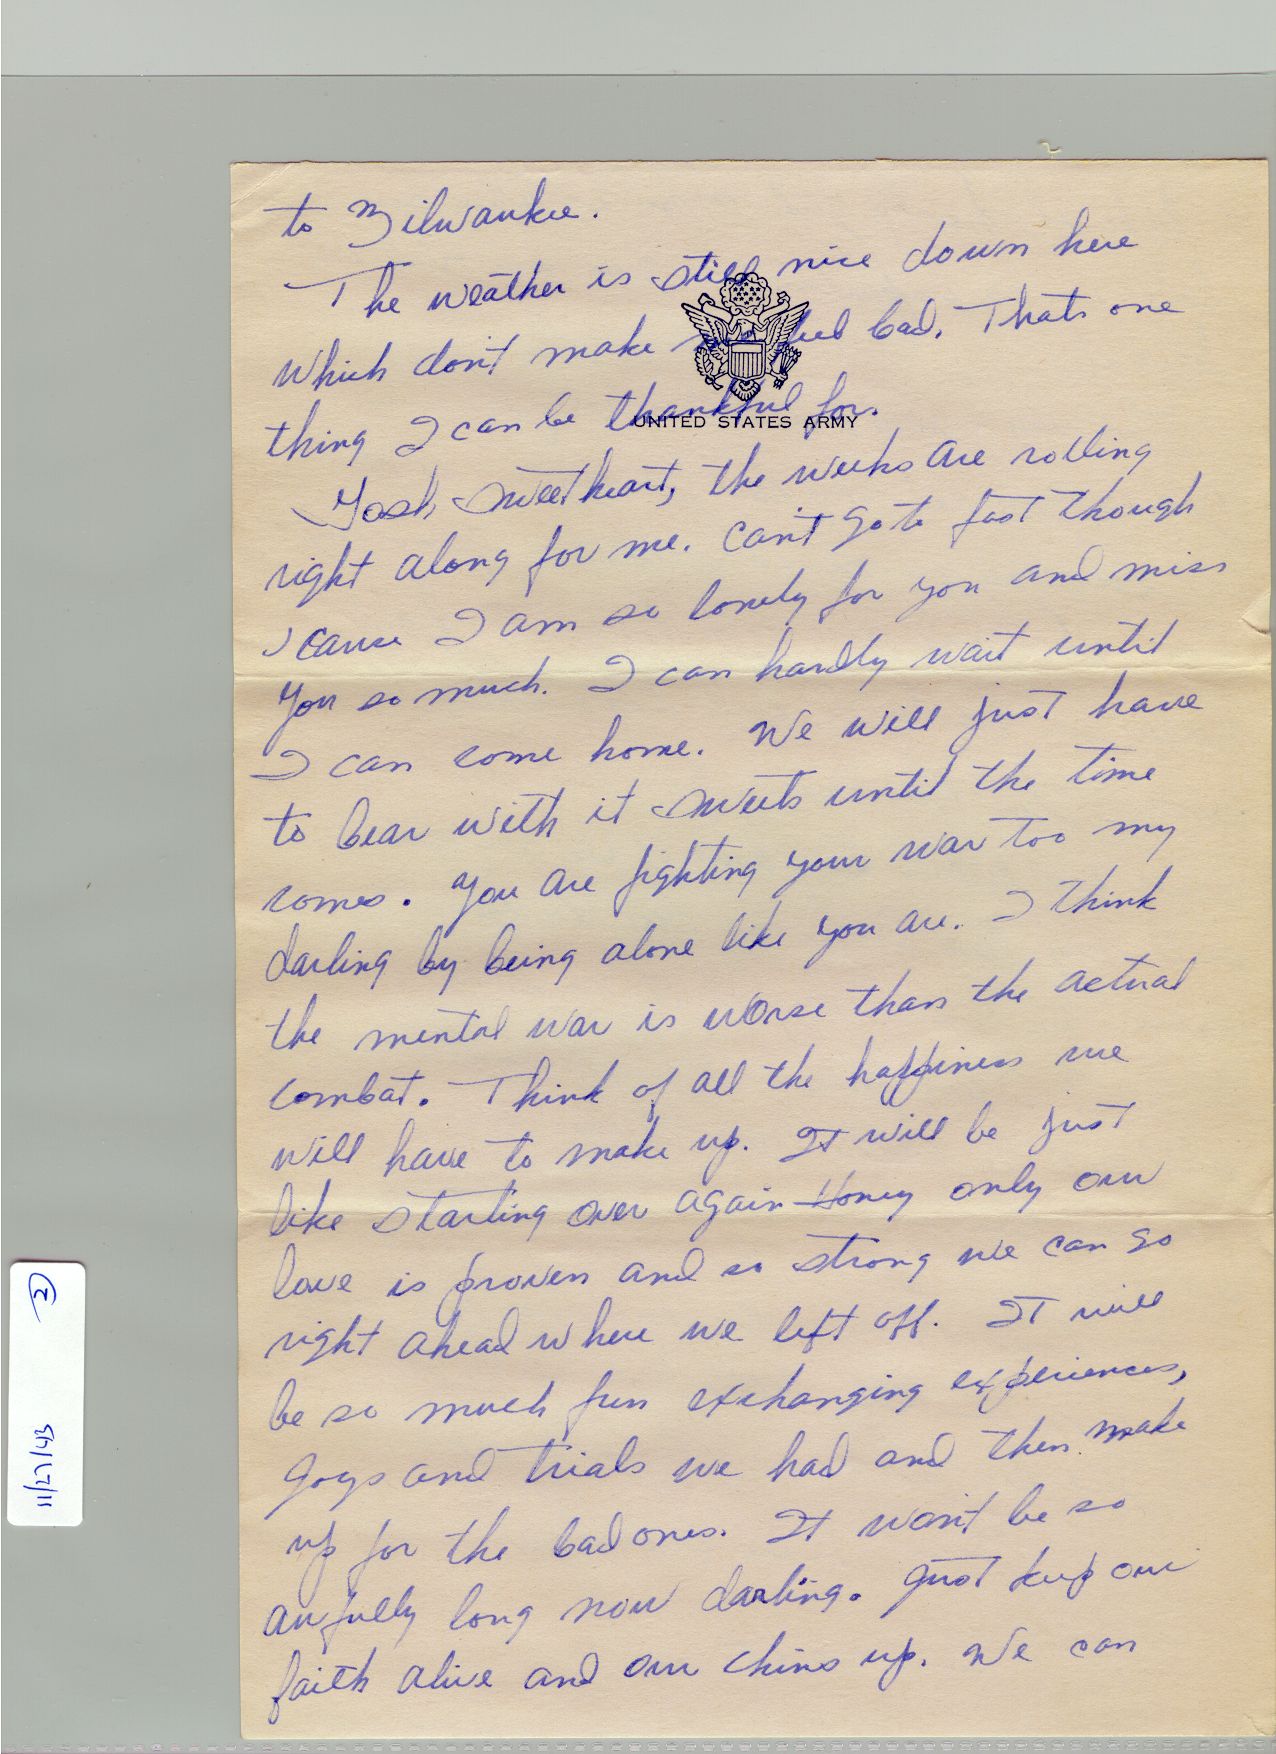 to Milwaukee.
The weather is still nice down here
which don't make me feel bad. Thats one
thing I can be thankful for.
UNITED STATES ARMY
Gosh, sweetheart, the weeks are rolling
right along for me. Can't go to fast though
'cause I am so lonely for you and miss
you so much. I can hardly wait until
I can come home. We will just have
to bear with it sweets until the time
comes. You are fighting your war too my
darling by being alone like you are. I think
the mental war is worse than the actual
combat. Think of all the happiness we
will have to make up. It will be just
like starting over again Honey only our
love is proven and so strong we can go
right ahead where we left off. It will
be so much fun exchanging experiences,
joys and trials we had and then make
up for the bad ones. It won't be so
awfully long now darling. Just keep our
faith alive and our chins up. We can
11/27/43 2